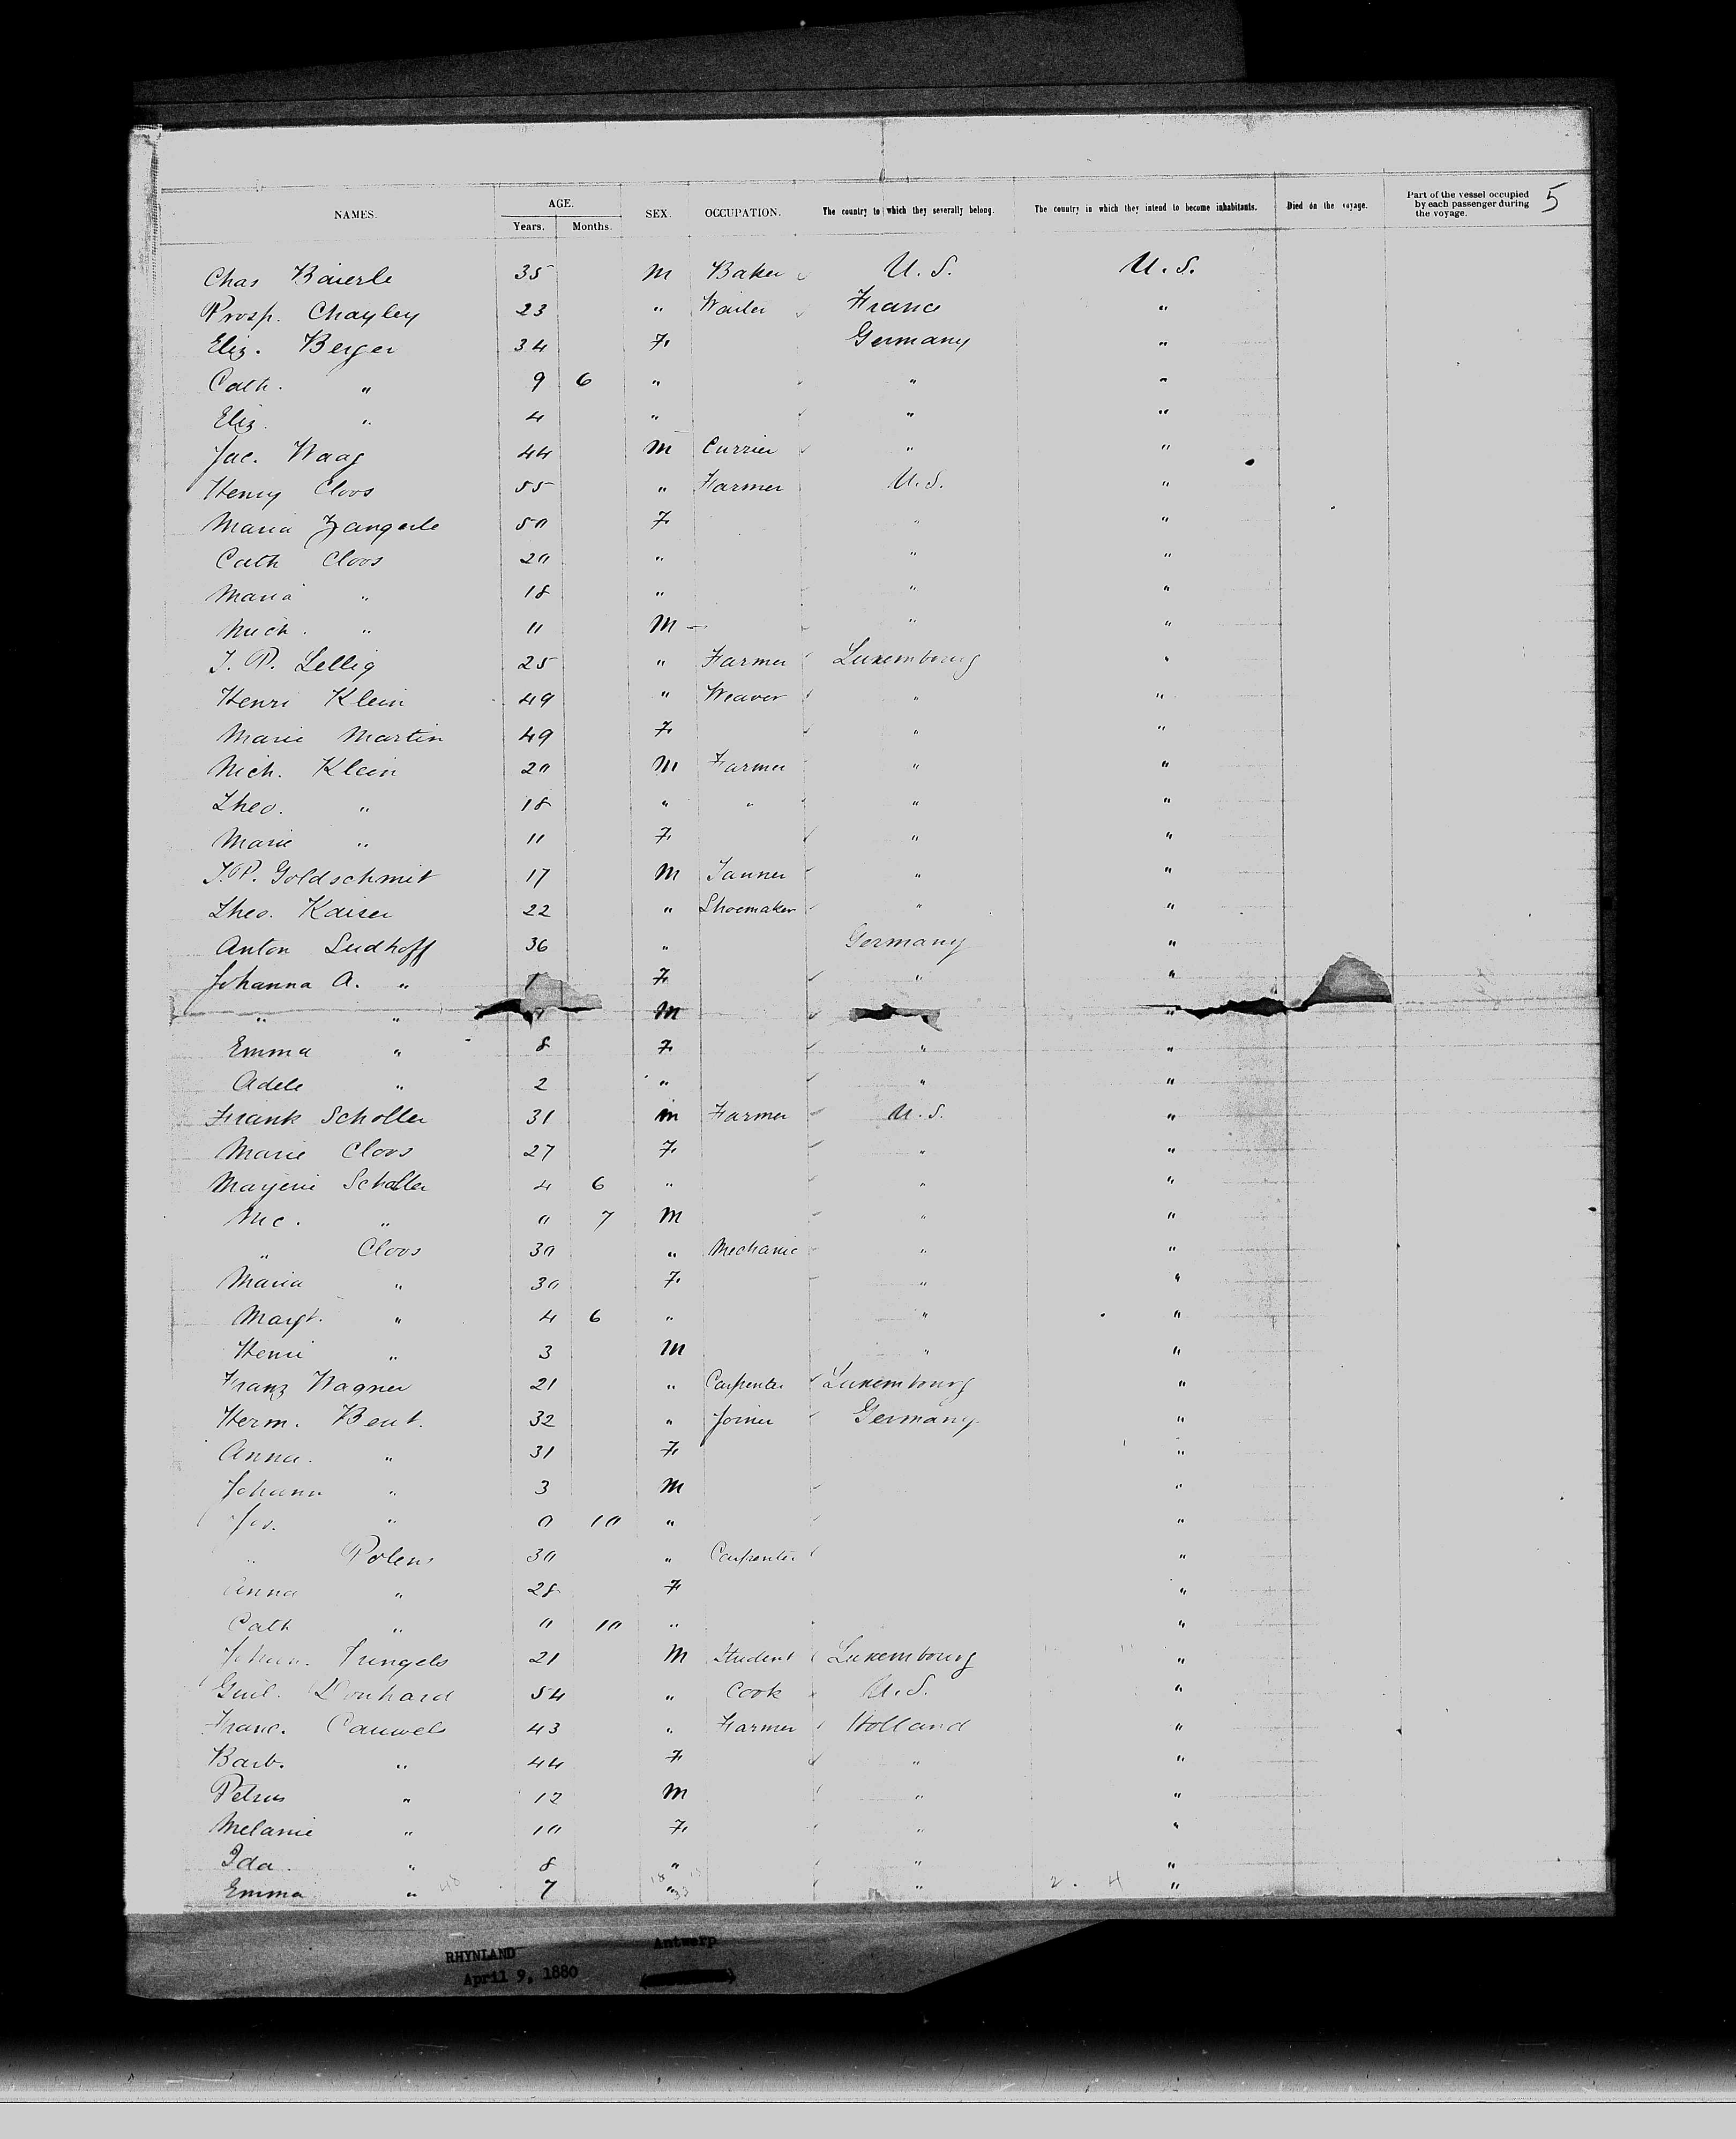 5
NAMES. AGE. SEX. OCCUPATION. The country to which they severally belong. The country in which they intend to become inhabitants. Died on the voyage. Part of the vessel occupied by each passenger during the voyage.
Years. Months.
Chas Baierle 35 M Baker U.S. U.S.
Prosp. Chayley 23 " Waiter France "
Eliz. Berger 34 F. Germany "
Cath. " 9 6 " " "
Eliz. " 4 " " "
Jac. Waag 44 M Currier " "
Henry Cloos 55 " Farmer U.S. "
Maria Zangerle 50 F. " "
Cath Cloos 20 " " "
Maria " 18 " " "
Nich. " 11 M " "
J. P. Lellig 25 " Farmer Luxembourg "
Henri Klein 49 " Weaver " "
Marie Martin 49 F. " "
Nich. Klein 20 M Farmer " "
Theo. " 18 " " " "
Marie " 11 F. " "
J.P. Goldschmit 17 M Tanner " "
Theo. Kaiser 22 " Shoemaker " "
Anton Sudhoff 36 " Germany "
Johanna A. " F. " "
" " M "
Emma " 8 F. " "
Adele " 2 " " "
Frank Scholler 31 m Farmer U.S. "
Marie Cloos 27 F. " "
Scholler 4 6 " " "
Nic. " 0 7 M " "
" Cloos 30 " Mechanic " "
Maria " 30 F. " "
Margt. " 4 6 " " "
Henri " 3 M " "
Franz Wagner 21 " Carpenter Luxembourg "
Herm. Bent. 32 " Joiner Germany "
Anna. " 31 F. "
Johann " 3 M "
Jos. " 0 10 " "
" Polens 30 " Carpenter "
Anna " 28 F "
Cath " 0 10 " "
Johan. 21 M Student Luxembourg "
Guil. Donhard 54 " Cook U.S. "
Franc. Cauwels 43 " Farmer Holland "
Barb. " 44 F " "
Petrus " 12 M " "
Melanie " 10 F. " "
Ida. " 8 " " "
Emma " 7 " " "
RHYNLAND Antwerp
April 9, 1880